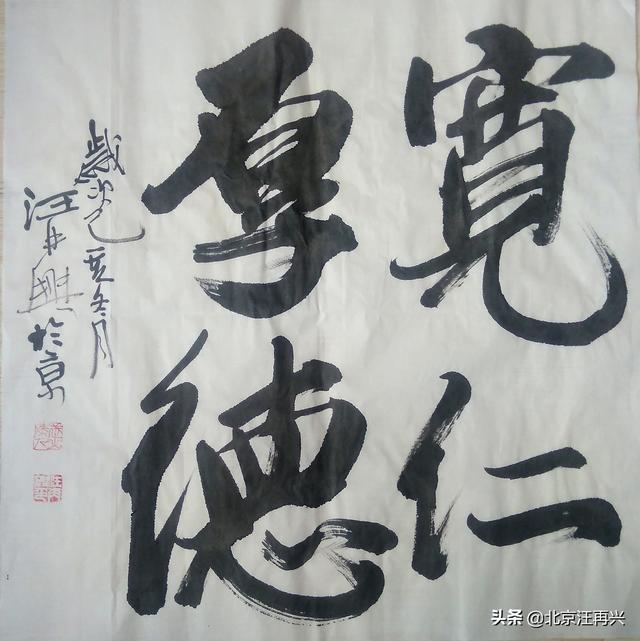 寬仁
厚德
歲次己亥冬月
汪再興於京
头条 @北京汪再兴